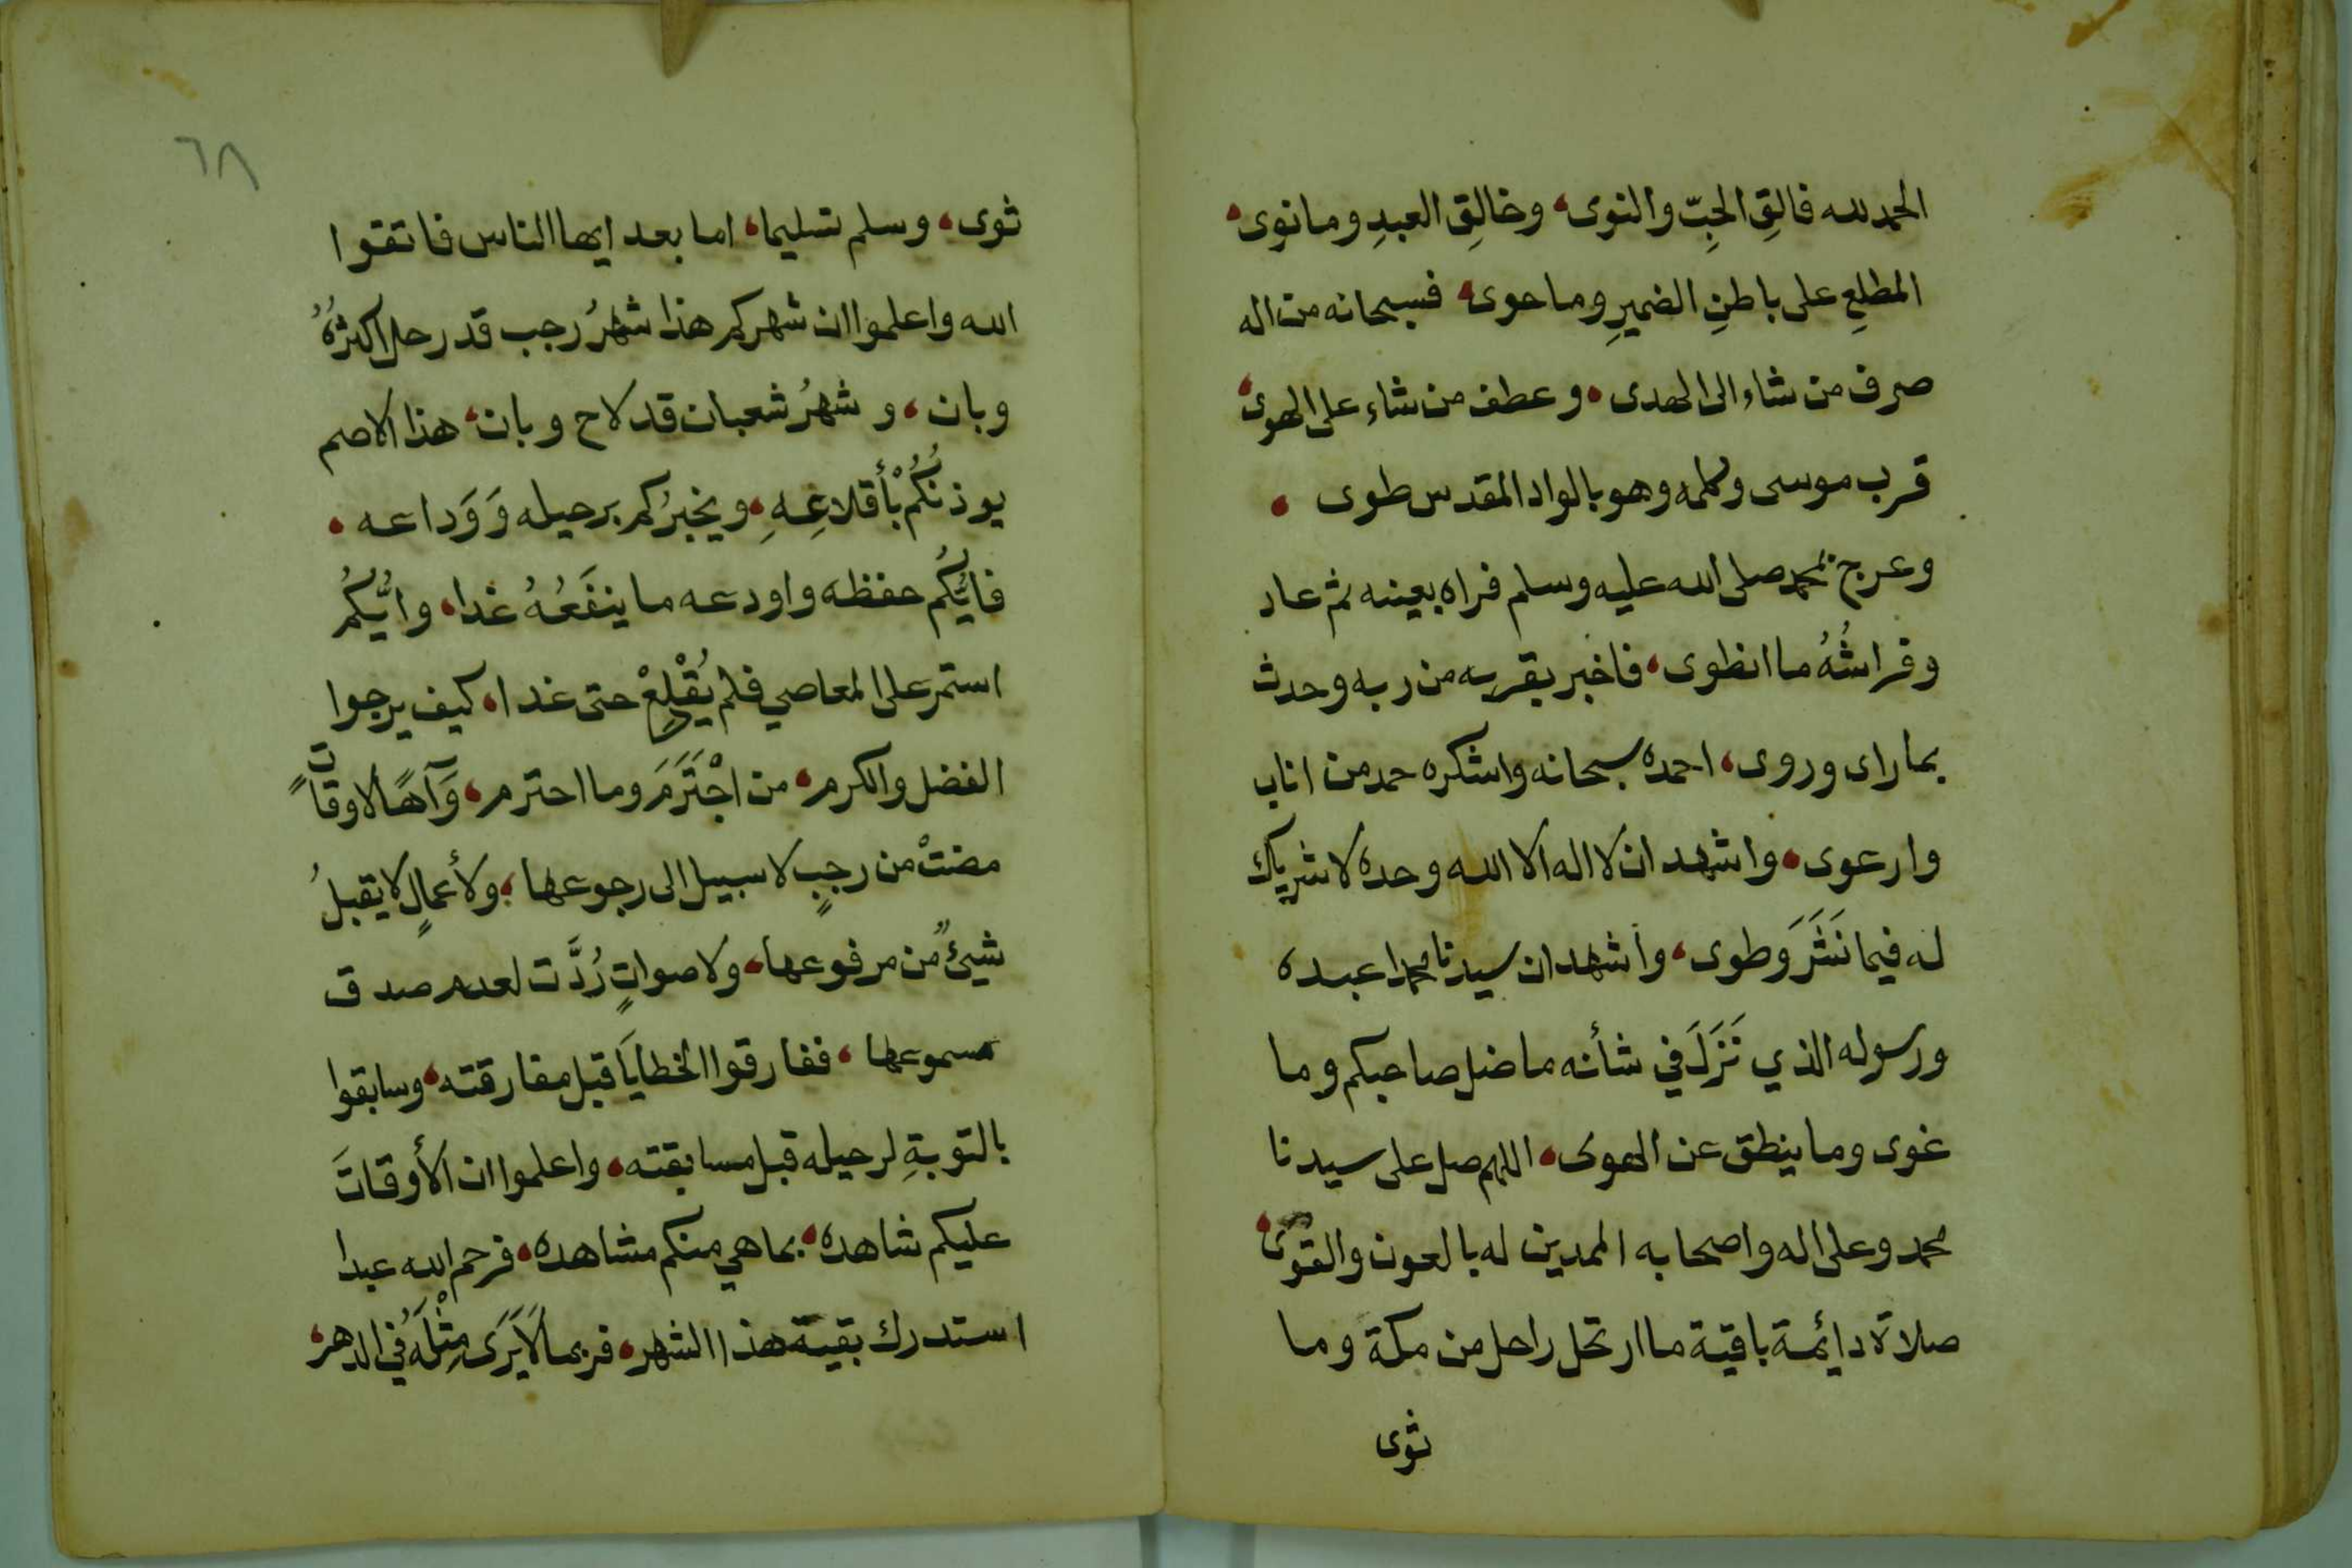 الحمد لله فالقِ الحبِّ والنوى، وخالقِ العبدِ وما نوى،
المطلعِ على باطنِ الضميرِ وما حوى، فسبحانه من اله
صرف من شاء الى الهدى، وعطف من شاء على الهوى،
قرب موسى وكلمه وهو بالواد المقدس طوى،
وعرج بمحمد صلى الله عليه وسلم فراه بعينه ثم عاد
وفراشُهُ ما انطوى، فاخبر بقربه من ربه وحدث
بما راى وروى، احمده سبحانه واشكره حمد من اناب
وارعوى، واشهد ان لا اله الا الله وحده لا شريك
له فيما نَشَرَ وطوى، وأشهد ان سيدنا محمدا عبده
ورسوله الذي نَزَلَ في شأنه ما ضل صاحبكم وما
غوى وما ينطق عن الهوى، اللهم صل على سيدنا
محمد وعلى اله واصحابه الممدين له بالعون والقُوَى،
صلاة دايمة باقية ما ارتحل راحل من مكة وما
ثوى
٦٨
ثوى، وسلم تسليما، اما بعد ايها الناس فاتقوا
الله واعلموا ان شهركم هذا شهرُ رجب قد رحل اكثرُهُ
وبان، و شهرُ شعبان قد لاح وبان، هذا الاصم
يوذنُكُمْ بأقلاعِهِ، ويخبرُكم برحيله وَوَداعه،
فايُّكُم حفظه واودعه ما ينفَعُهُ غدا، وايُّكُم
استمر على المعاصي فلم يُقْلِعْ حتى غدا، كيف يرجوا
الفضل والكرم، من اجْتَرَمَ وما احترم، وَآهًا لاوقاتٍ
مضتْ من رجبٍ لا سبيل الى رجوعها، ولأعمالٍ لا يقبلُ
شيئٌ من مرفوعها، ولاصواتٍ رُدَّت لعدم صدق
مسموعها، ففارقوا الخطايَا قبل مفارقته، وسابقوا
بالتوبةِ لرحيله قبل مسابقته، واعلموا ان الأوقاتَ
عليكم شاهده، بما هي منكم مشاهده، فرحم الله عبدا
استدرك بقية هذا الشهر، فربما لَا يَرَى مِثْلَهُ في الدهر،